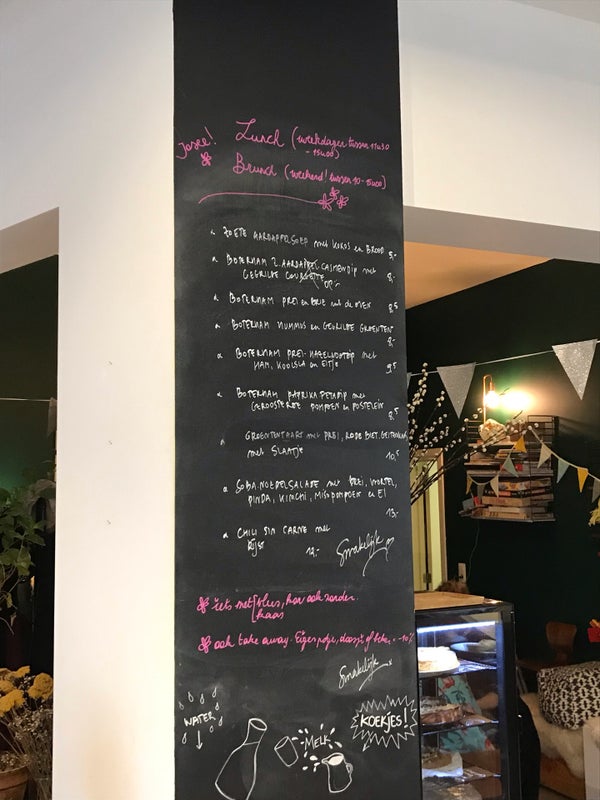 Josee!
Lunch (weekdagen tussen 11u30
- 15u00)
Brunch (weekend! tussen 10-15u00)
ZOETE AARDAPPELSOEP met KOKOS en BROOD 5,-
BOTERHAM Z. AARDAPPEL met
GEGRILDE COURGETTE 8,-
BOTERHAM PREI en BRIE uit de OVEN 8,5
BOTERHAM HUMMUS en GEGRILDE GROENTEN
8,-
BOTERHAM PREI- met
HAM, KOOLSLA en EITJE 9,5
BOTERHAM PAPRIKA FETADIP met
GEROOSTERDE POMPOEN en POSTELEIN
8,5
GROENTENTAART met PREI, RODE BIET, GEITENKAAS
met SLAATJE 10,5
SOBA-NOEDELSALADE met BIET, WORTEL,
PINDA, KIMCHI, MISOPOMPOEN en EI
13,-
CHILI SIN CARNE met
RIJST 12,-
Smakelijk
iets met vlees, kan ook zonder.
kaas
ook take away. Eigen potje, doosje of beker = -10%
Smakelijk
WATER
MELK
KOEKJES!